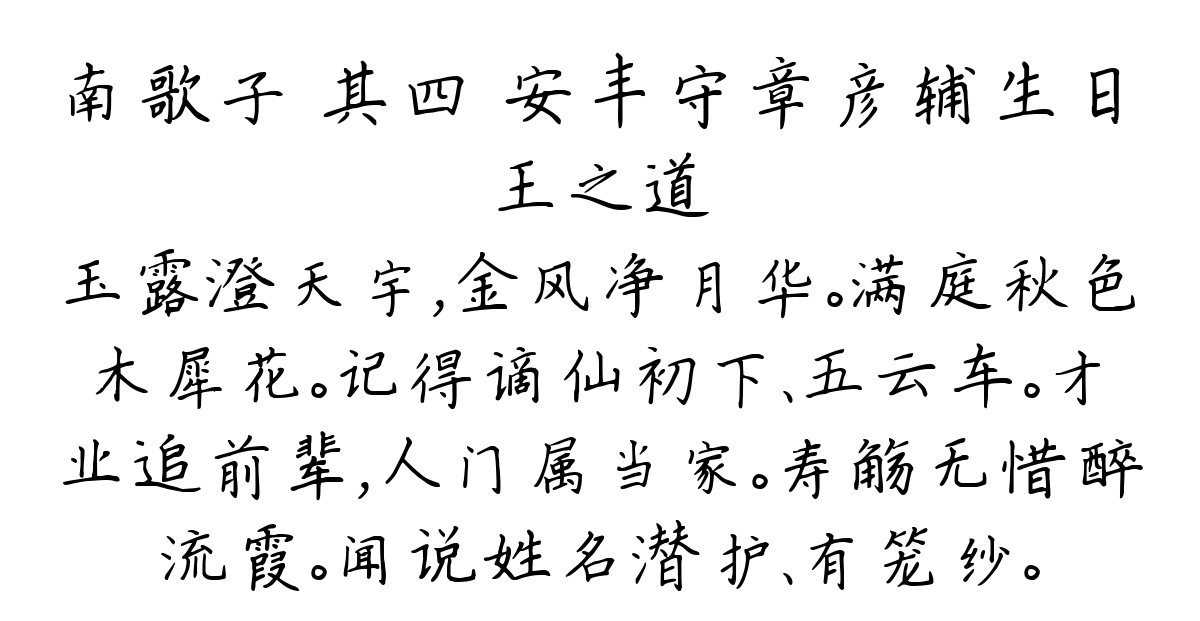 南歌子 其四 安丰守章彦辅生日
王之道
玉露澄天宇,金风净月华。满庭秋色
木犀花。记得谪仙初下、五云车。才
业追前辈,人门属当家。寿觞无惜醉
流霞。闻说姓名潜护、有笼纱。